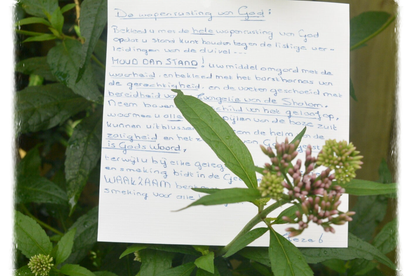 De wapenrusting van God:
Bekleed u met de hele wapenrusting van God
opdat u stand kunt houden tegen de listige ver-
leidingen van de duivel...
HOUD DAN STAND! Uw middel omgord met de
waarheid, en bekleed met het borstharnas van
de gerechtigheid, en de voeten geschoeid met
bereidheid van van de Shalom.
Neem bovenal schild van het geloof, op
waarmee u alle pijlen van de boze zult
kunnen uitblussen de helm van de
zaligheid en het
is Gods Woord,
terwijl u bij elke geleg
en smeking bidt in de Ge
WAAKZAAM
smeking voor alle
6